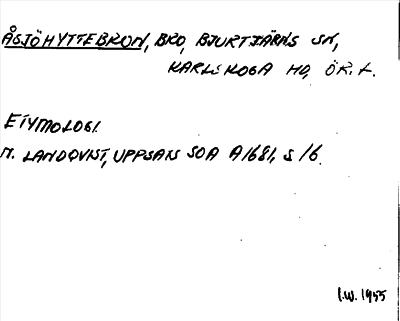 ÅSJÖHYTTEBRON, BRO, BJURTJÄRNS SN,
KARLSKOGA HD, ÖR. L.
ETYMOLOGI.
M. LANDQVIST, UPPSATS SOA A1681, S 16
I.W. 1955